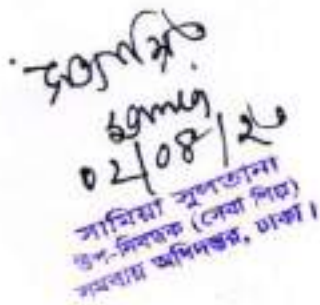 সত্যায়িত
০২/০৪/২০
সামিয়া সুলতানা
উপ-নিবন্ধক (সেবা শিল্প)
সমবায় অধিদপ্তর, ঢাকা।